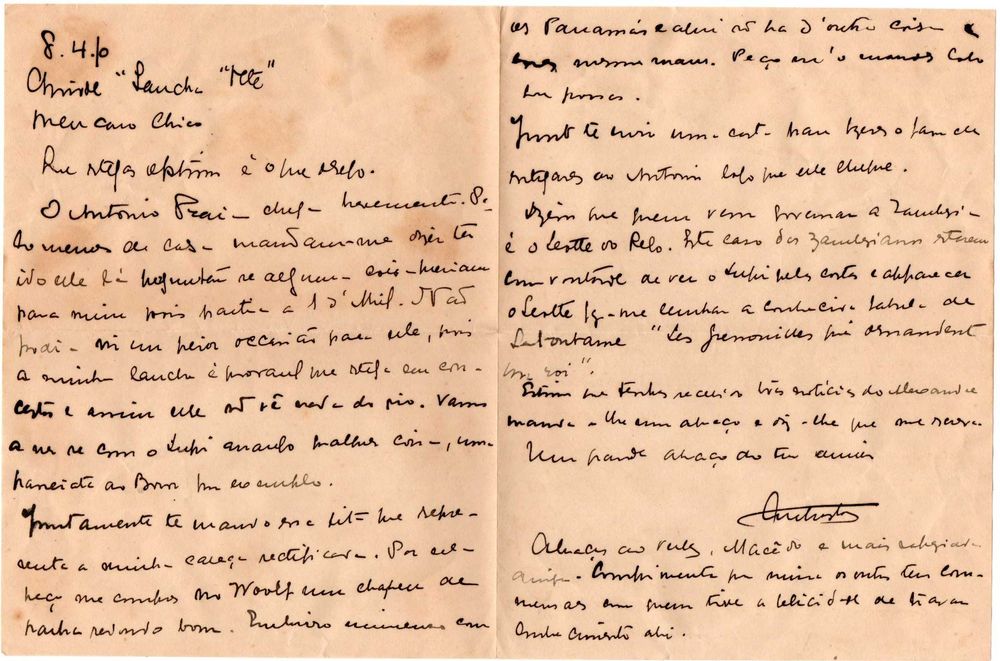 8.4.
"Lancha "Tete"
Meu caro Chico
Que estejas optimo é o que desejo.
O Antonio chega brevemente. Pe-
lo menos de casa mandaram-me dizer ter
ido elle lá perguntar se alguma coisa queriam
para mim pois partia a 1 d'Abril. Não
podia vir em peior occasião para elle, pois
a minha lancha é provavel que esteja em con-
certos e assim elle só vê nada do rio. Vamos
a ver se com o Lupi arranjo melhor coisa, uma
passeiata ao por exemplo.
Juntamente te mando essa fita que repre-
senta a minha cabeça rectificada. Por ella
peço me compres no Woolf um chapeu de
palha redondo bom. Embirro immenso com
os Panamás e aqui só ha d'outra coisa e
esses mesmo maus. Peço m'o mandes logo
que possas.
Junto te envio uma carta para fazeres o favor de
entregares ao Antonio logo que elle chegue.
Dizem que quem vem governar a Zambezia
é o Leotte do Rego. Este caso dos Zambezianos estarem
com vontade de ver o Lupi pelas costas e apparecer
o Leotte faz-me lembrar a conhecida fabula de
Lafontaine "Les grenouilles qui demandent
un roi".
Estimo que tenhas recebido boas noticias do Alexandre
manda-lhe um abraço e diz-lhe que me escreva
Um grande abraço do teu amigo
Abraços ao Macêdo e mais
Comprimenta por mim os outros teus com-
mensaes com quem tive a felicidade de travar
conhecimento ahi.